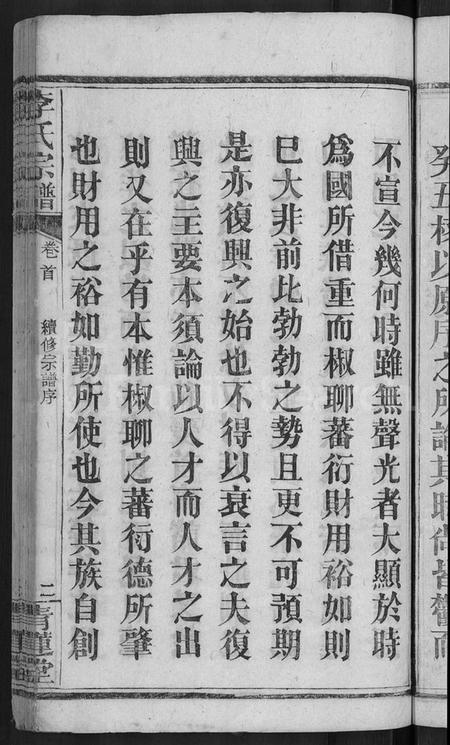 癸五核以原序之所謂其時尚皆瞽而
不宣今幾何時雖無聲光者大顯於時
爲國所借重而椒聊蕃衍財用裕如則
巳大非前比勃勃之勢且更不可預期
是亦復興之始也不得以衰言之夫復
興之主要本須論以人才而人才之出
則又在乎有本惟椒聊之蕃衍德所肇
也財用之裕如勤所使也今其族自創
李氏宗譜
卷首
續修宗譜序
二
青蓮堂